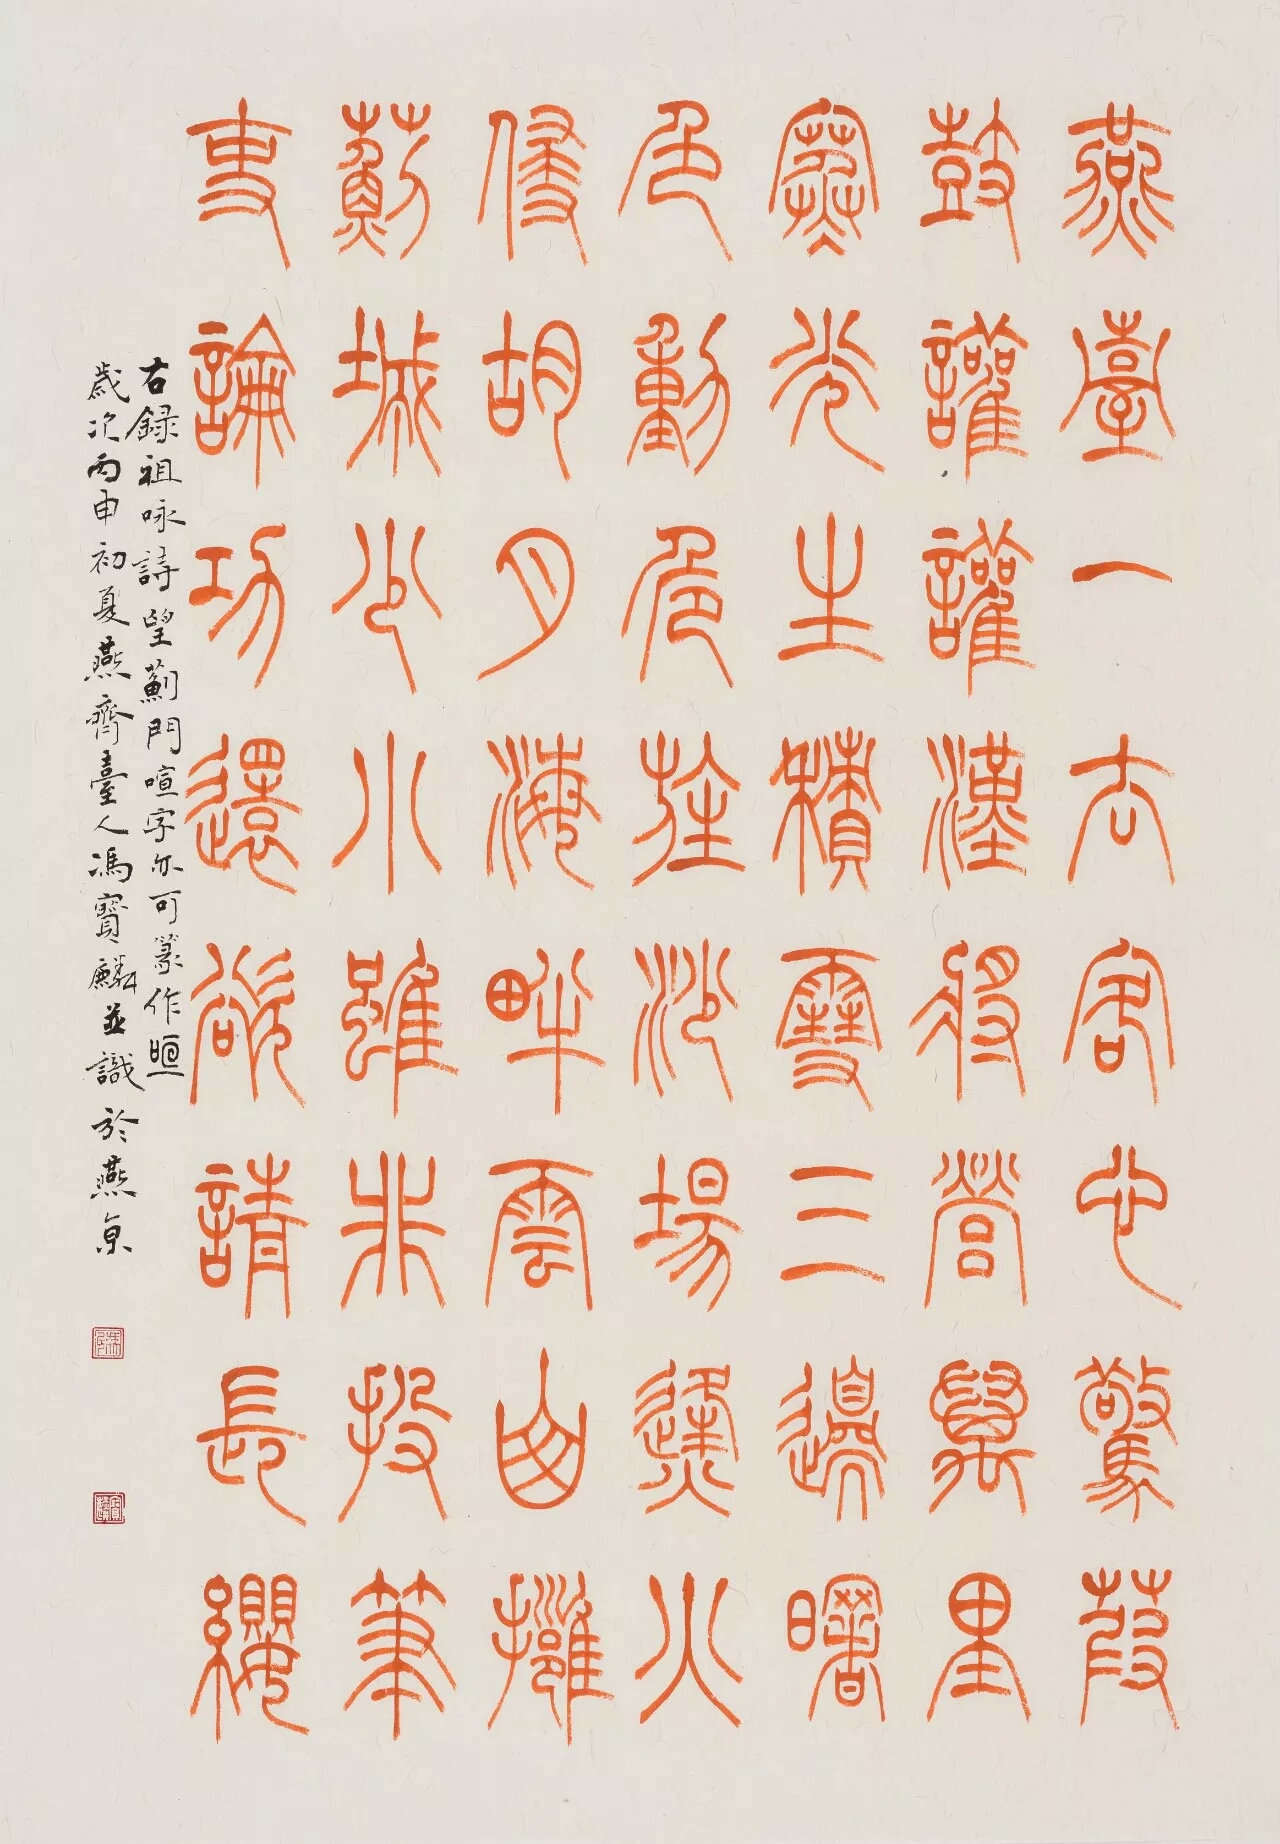 燕臺一去客心驚葭
鼓讙讙漢將營萬里
寒光生積雪三邊曙
色動危旌沙場烽火
侵胡月海畔雲山擁
薊城少小雖非投筆
吏論功還欲請長纓
右錄祖咏詩望薊門喧字亦可篆作咺
歲次丙申初夏燕齊臺人馮寶麟並識於燕京